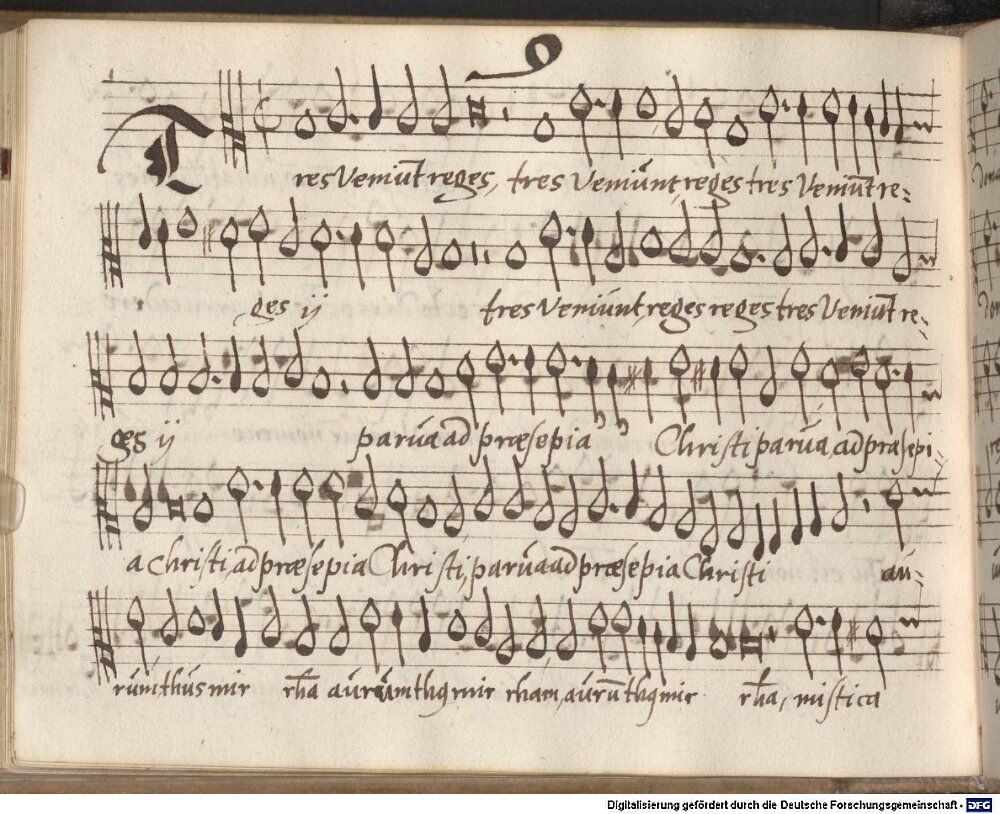 Tres Veniūt reges, tres Veniunt reges tres Veniūt re-
ges ij tres Veniunt reges reges tres Veniūt re-
ges ij parua ad præsepia Christi parua ad præsepi-
a Christi, ad præsepia Christi, parua ad præsepia Christi au-
rum thus mir rhā aurum thꝯ mir rham, aurū thꝯ mir rhā, mistica
Digitalisierung gefördert durch die Deutsche Forschungsgemeinschaft - DFG